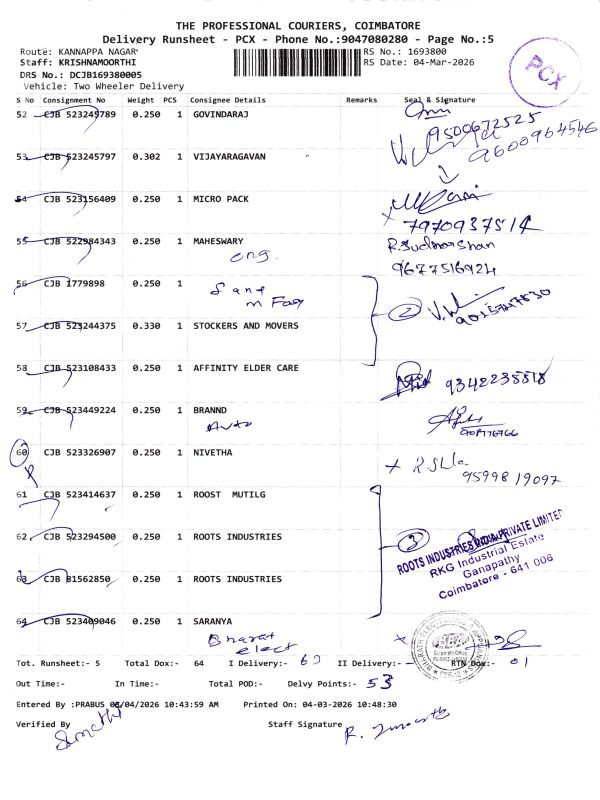 THE PROFESSIONAL COURIERS, COIMBATORE
Delivery Runsheet - PCX - Phone No.:9047080280 - Page No.:5
Route: KANNAPPA NAGAR
RS No.: 1693800
Staff: KRISHNAMOORTHI
RS Date: 04-Mar-2026
DRS No.: DCJB169380005
Vehicle: Two Wheeler Delivery
PCX
S No Consignment No Weight PCS Consignee Details Remarks Seal & Signature
52 CJB 523245789 0.250 1 GOVINDARAJ
9500672525
9600964546
53 CJB 523245797 0.302 1 VIJAYARAGAVAN
54 CJB 523156409 0.250 1 MICRO PACK
7970937514
55 CJB 522984343 0.250 1 MAHESWARY
eng.
R.Sudharshan
9677516924
56 CJB 1779898 0.250 1
2
57 CJB 523244375 0.330 1 STOCKERS AND MOVERS
58 CJB 523108433 0.250 1 AFFINITY ELDER CARE
59 CJB 523449224 0.250 1 BRANND
Auto
60 CJB 523326907 0.250 1 NIVETHA
9599819097
61 CJB 523414637 0.250 1 ROOST MUTILG
62 CJB 523294500 0.250 1 ROOTS INDUSTRIES
3
ROOTS INDUSTRIES INDIA PRIVATE LIMITED
RKG Industrial Estate
Ganapathy
Coimbatore - 641 006
63 CJB 81562850 0.250 1 ROOTS INDUSTRIES
64 CJB 523409046 0.250 1 SARANYA
Bharat
elect
Tot. Runsheet:- 5 Total Dox:- 64 I Delivery:- 63 II Delivery:- RTN Dox:- 01
Out Time:- In Time:- Total POD:- Delvy Points:- 53
Entered By :PRABUS 03/04/2026 10:43:59 AM Printed On: 04-03-2026 10:48:30
Verified By Staff Signature